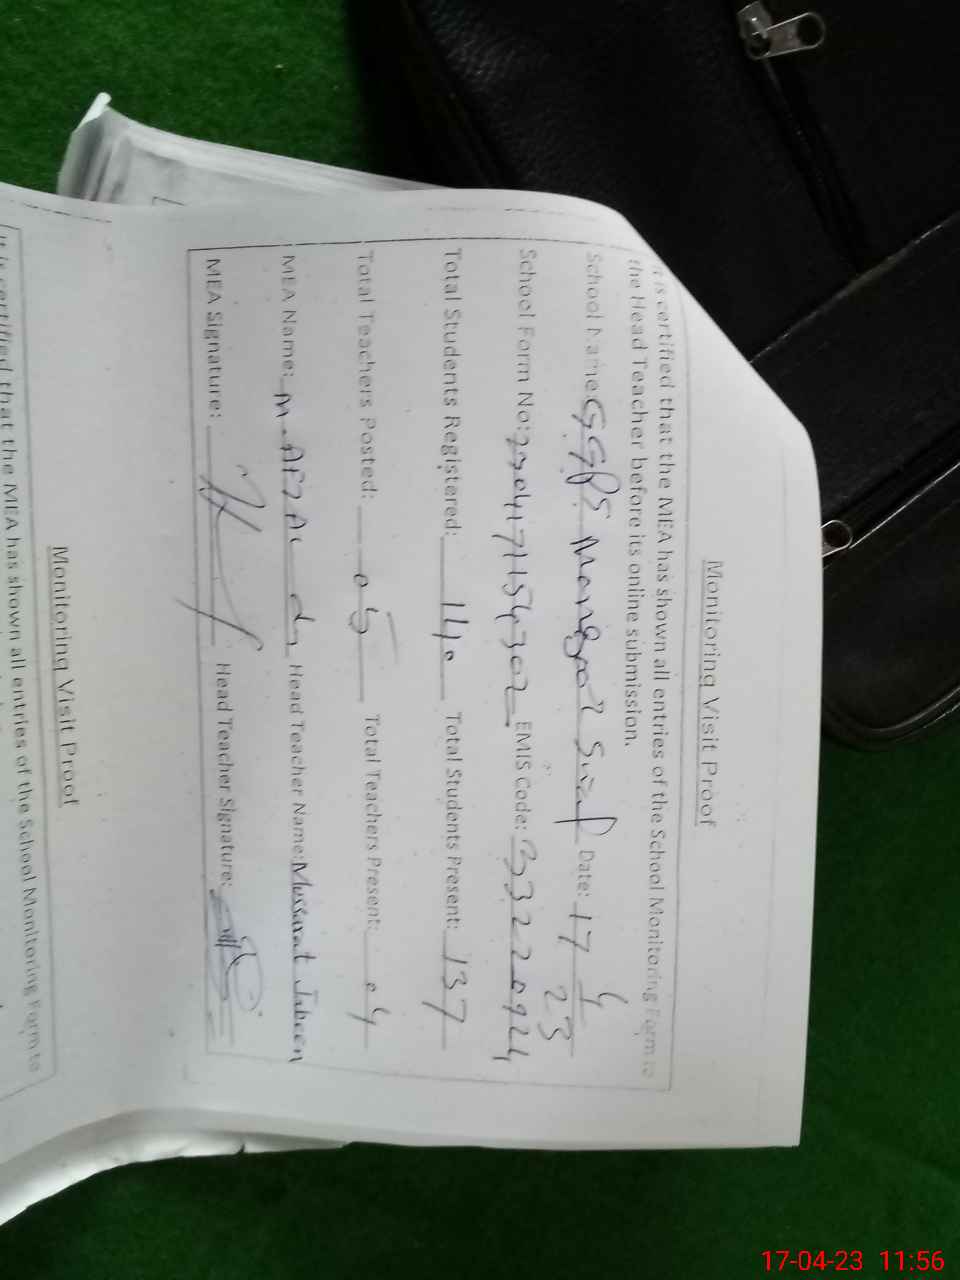 Monitoring Visit Proof
It is certified that the MEA has shown all entries of the School Monitoring Form to
the Head Teacher before its online submission.
School Name: GGPS Date: 17 4 23
School Form No: EMIS Code: 33220924
Total Students Registered: 140 Total Students Present: 137
Total Teachers Posted: 05 Total Teachers Present: 04
MEA Name: M. Head Teacher Name: Mussarat Jabeen
MEA Signature: Head Teacher Signature:
Monitoring Visit Proof
It is certified that the MEA has shown all entries of the School Monitoring Form to
17-04-23 11:56